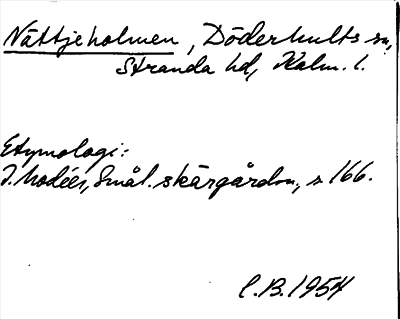 Nättjeholmen, Döderhults sn,
Stranda hd, Kalm. l.
Etymologi:
J. Modéer, Smål. skärgårdsn, s 166.
C.B. 1954